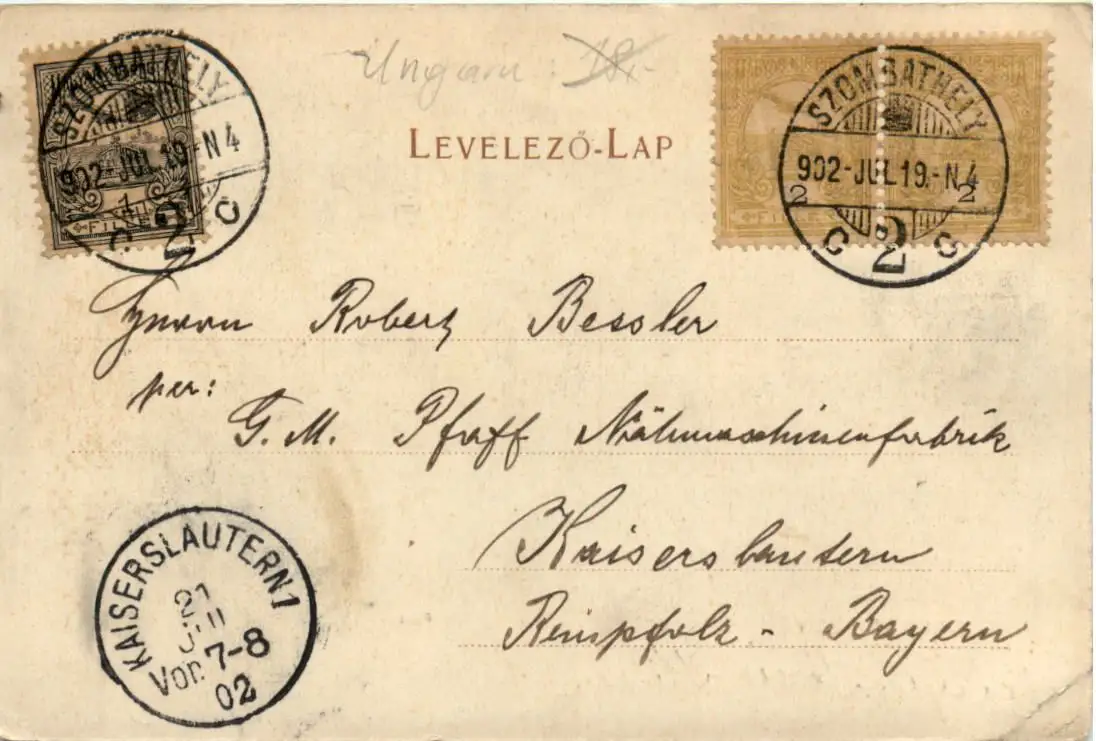 Ungarn
LEVELEZŐ-LAP
SZOMBATHELY
902-JUL.19.-N4
1
FILLÉR
C 2 C
SZOMBATHELY
902-JUL.19.-N.4
2 2
FILLÉR
C 2 C
Herrn Robert Bessler
per:
G. M. Pfaff Nähmaschinenfabrik
Kaiserslautern
Reinpfalz - Bayern
KAISERSLAUTERN 1
21
JUL
Vor. 7-8
02